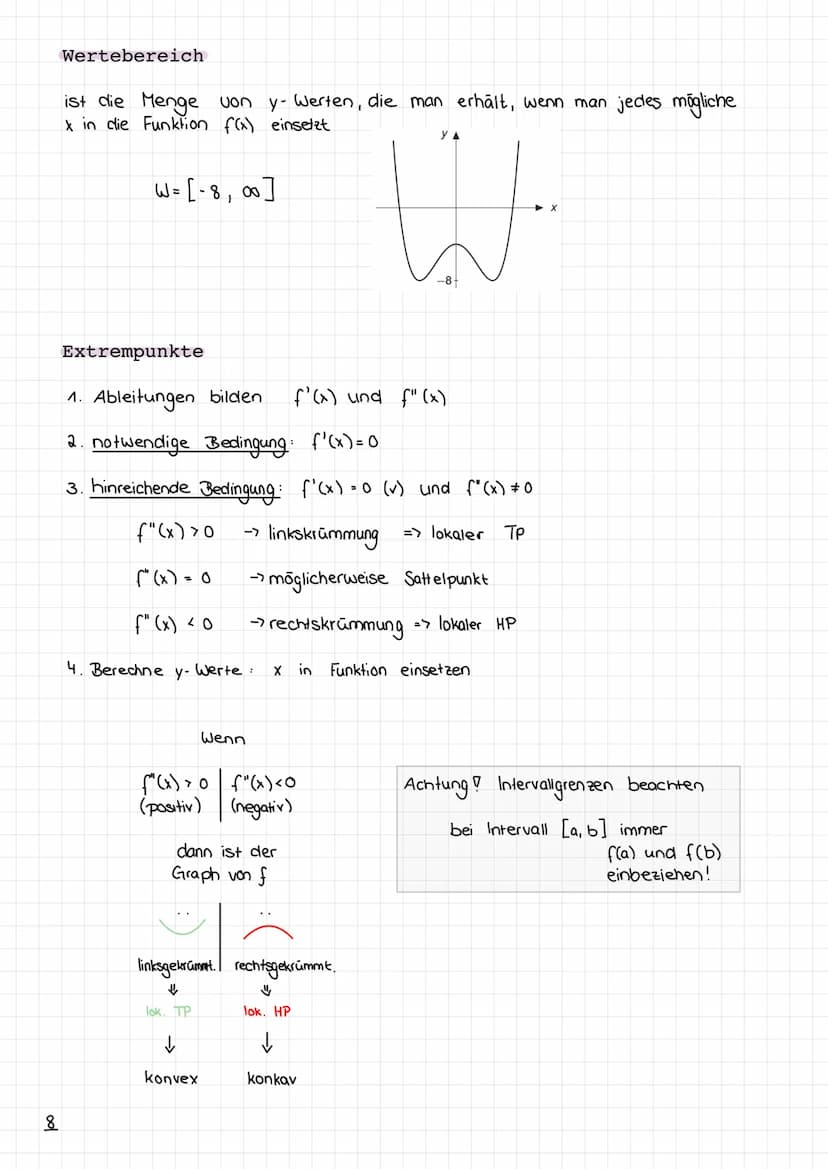 Wertebereich
ist die Menge von y-Werten, die man erhält, wenn man jedes mögliche
x in die Funktion f(x) einsetzt
y
W = [-8, ∞]
x
-8
Extrempunkte
1. Ableitungen bilden f'(x) und f"(x)
2. notwendige Bedingung: f'(x) = 0
3. hinreichende Bedingung: f'(x) = 0 (v) und f"(x) ≠ 0
f"(x) > 0 -> linkskrümmung => lokaler TP
f"(x) = 0 -> möglicherweise Sattelpunkt
f"(x) < 0 -> rechtskrümmung => lokaler HP
4. Berechne y-Werte: x in Funktion einsetzen
Wenn
f"(x) > 0 | f"(x) < 0
(positiv) | (negativ)
dann ist der
Graph von f
linksgekrümmt. | rechtsgekrümmt.
⇓ ⇓
lok. TP lok. HP
↓ ↓
konvex konkav
Achtung! Intervallgrenzen beachten
bei Intervall [a, b] immer
f(a) und f(b)
einbeziehen!
8